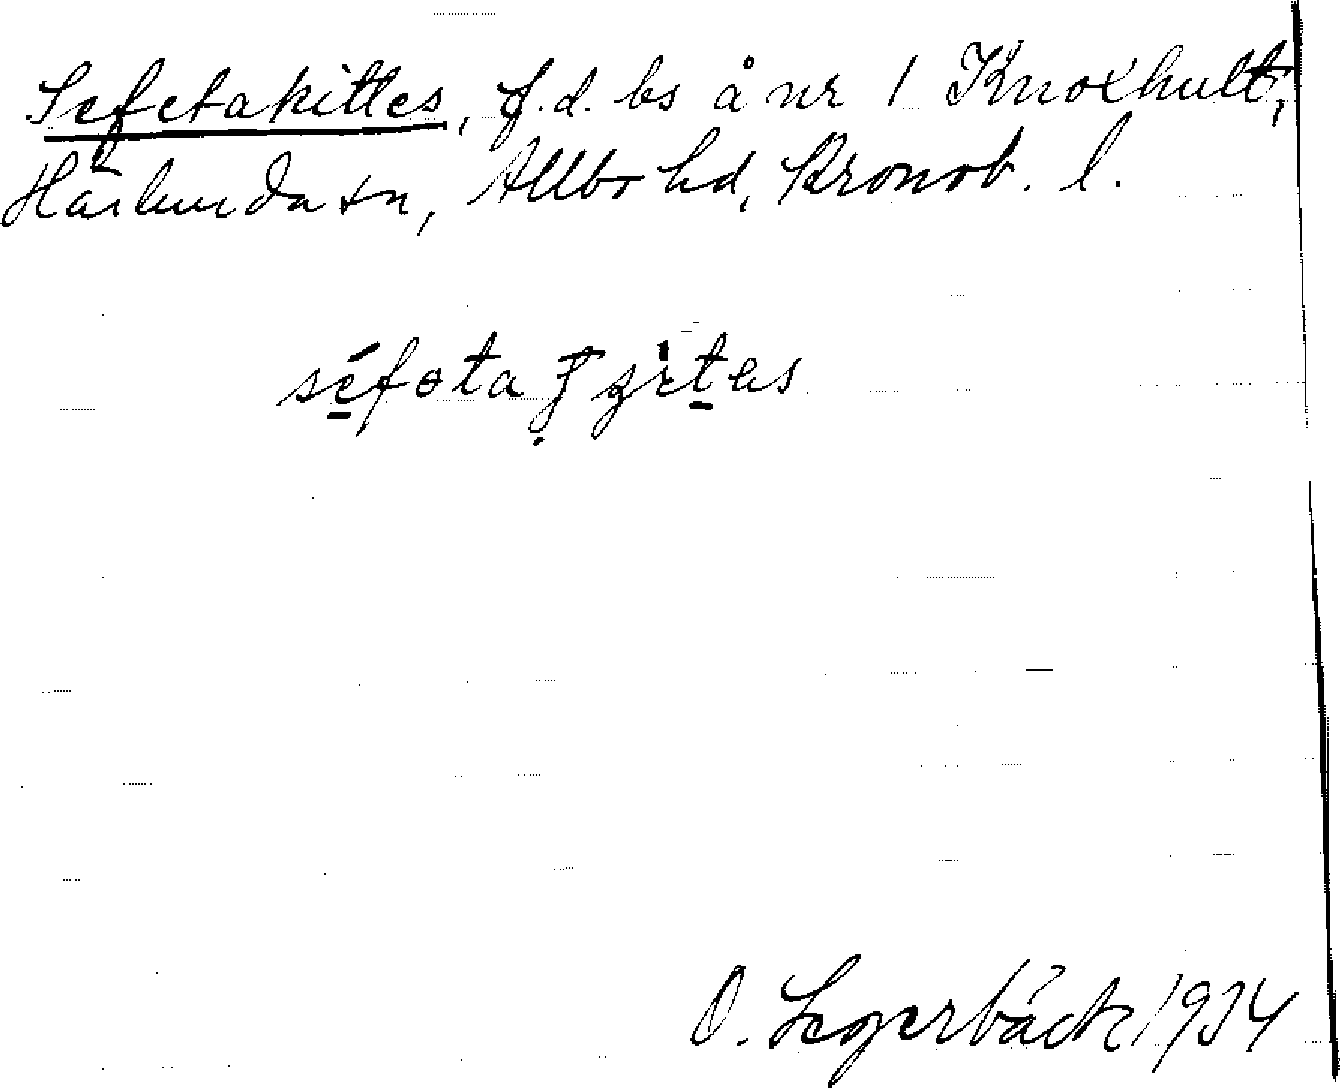 Sefetakittes, f.d. bs å nr 1 Knoxhult,
Härlunda sn, Allbo hd, Kronob. l.
O. Legerbäck 1934